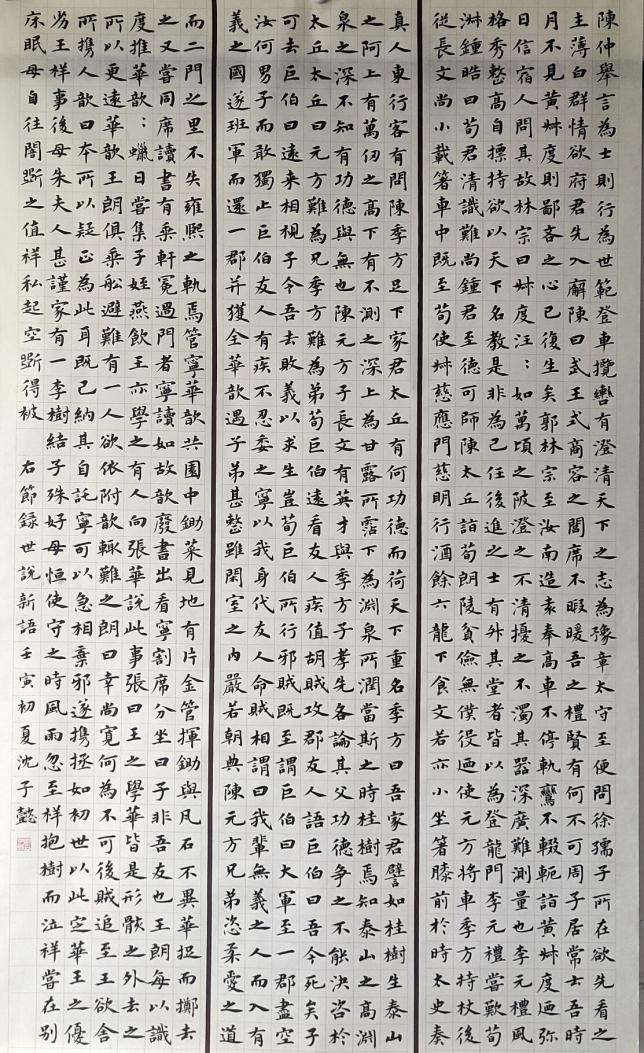 陳仲舉言為士則行為世範登車攬轡有澄清天下之志為豫章太守至便問徐孺子所在欲先看之
主薄白群情欲府君先入廨陳曰武王式商容之閭席不暇暖吾之禮賢有何不可周子居常云吾時
月不見黃叔度則鄙吝之心已復生矣郭林宗至汝南造袁奉高車不停軌鸞不輟軛詣黃叔度迺弥
日信宿人問其故林宗曰叔度汪：如萬頃之陂澄之不清擾之不濁其器深廣難測量也李元禮風
格秀整高自摽持欲以天下名教是非為己任後進之士有升其堂者皆以為登龍門李元禮嘗歎荀
淋鍾皓曰荀君清識難尚鍾君至德可師陳太丘詣荀朗陵貧儉無僕役迺使元方將車季方持杖後
從長文尚小載箸車中既至荀使叔慈應門慈明行酒餘六龍下食文若亦小坐箸膝前於時太史奏
真人東行客有問陳季方足下家君太丘有何功德而荷天下重名季方曰吾家君譬如桂樹生泰山
之阿上有萬仞之高下有不測之深上為甘露所霑下為淵泉所潤當斯之時桂樹焉知泰山之高淵
泉之深不知有功德與無也陳元方子長文有英才與季方子孝先各論其父功德争之不能決咨於
太丘太丘曰元方難為兄季方難為弟荀巨伯遠看友人疾值胡賊攻郡友人語巨伯曰吾今死矣子
可去巨伯曰遠来相視子令吾去敗義以求生豈荀巨伯所行邪賊既至謂巨伯曰大軍至一郡盡空
汝何男子而敢獨止巨伯友人有疾不忍委之寧以我身代友人命賊相謂曰我輩無義之人而入有
義之國遂班軍而還一郡并獲全華歆遇子弟甚整雖閑室之内嚴若朝典陳元方兄弟恣柔愛之道
而二門之里不失雍熙之軌焉管寧華歆共園中鋤菜見地有片金管揮鋤與凡石不異華捉而擲去
之又嘗同席讀書有乘軒冕過門者寧讀如故歆廢書出看寧割席分坐曰子非吾友也王朗每以識
度推華歆：蠟日嘗集子姪燕飲王亦學之有人向張華說此事張曰王之學華皆是形骸之外去之
所以更遠華歆王朗俱乘船避難有一人欲依附歆輒難之朗曰幸尚寬何為不可後賊追至王欲舍
所携人歆曰本所以疑正為此耳既已納其自託寧可以急相棄邪遂携拯如初世以此定華王之優
劣王祥事後母朱夫人甚謹家有一李樹結子殊好母恒使守之時風雨忽至祥抱樹而泣祥嘗在別
床眠母自往闇斫之值祥私起空斫得被 右節録世說新語壬寅初夏沈子懿